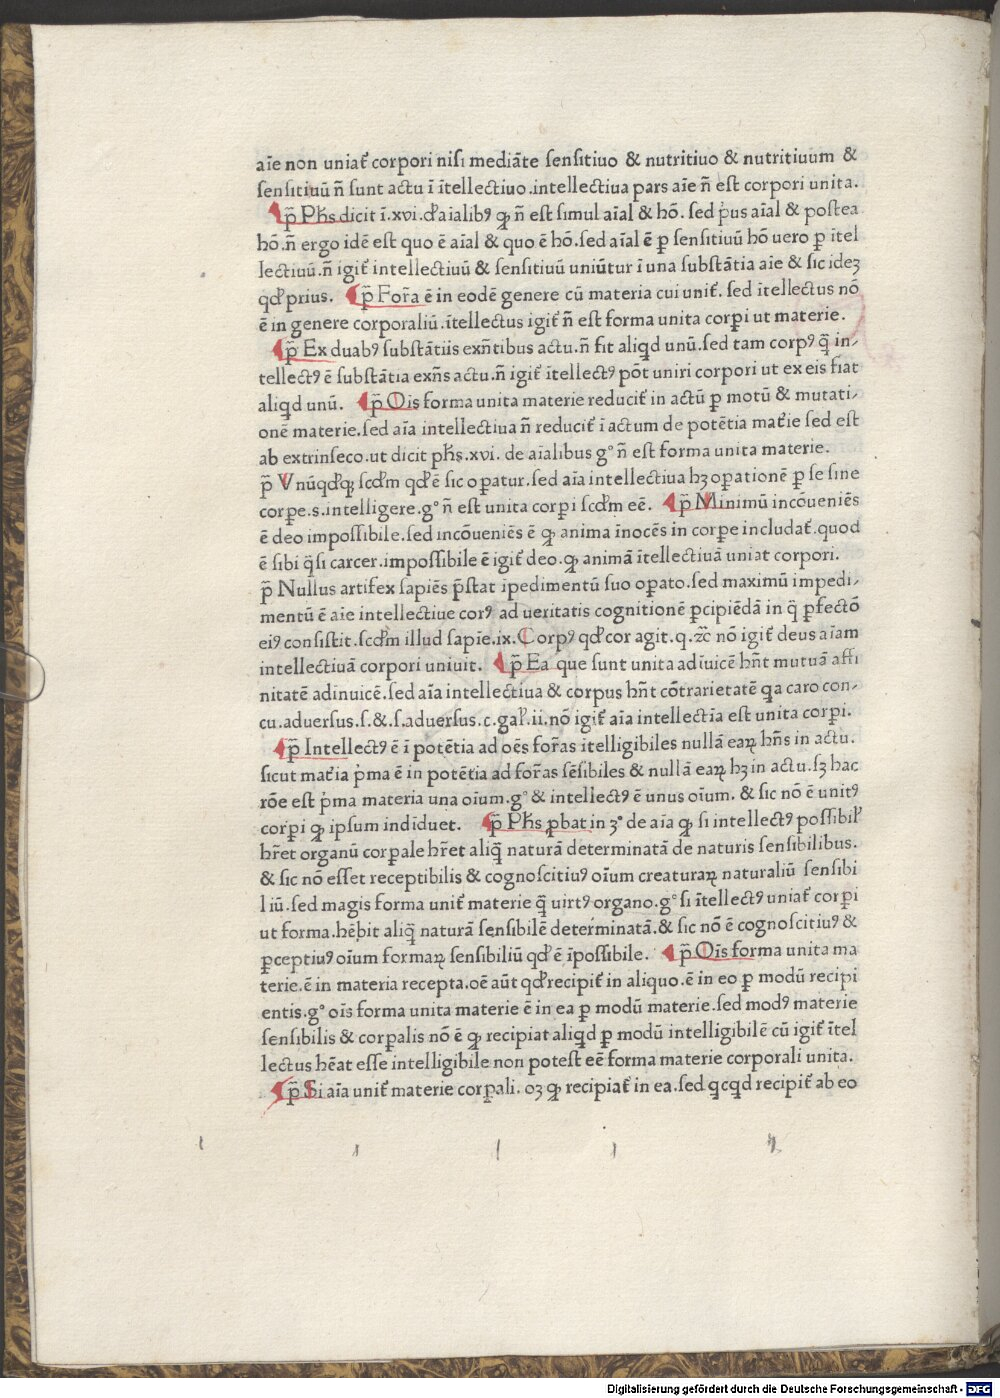 aīe non uniat᷑ corpori nisi mediāte sensitiuo & nutritiuo & nutritiuum &
sensitiuū n̄ sunt actu ī ītellectiuo.intellectiua pars aīe n̄ est corpori unita.
p̄ Ph̄s dicit ī.xvi.d̕aīalibꝰ ꝙ n̄ est simul aīal & hō. sed pͥus aīal & postea
hō.n̄ ergo idē est quo ē aīal & quo ē hō.sed aīal ē ꝑ sensitiuū hō uero ꝑ ītel
lectiuū.n̄ igit᷑ intellectiuū & sensitiuū uniūtur ī una substātia aīe & sic ideꝫ
qd̕ prius. p̄ For̄a ē in eodē genere cū materia cui unit᷑. sed ītellectus nō
ē in genere corporaliū.ītellectus igit᷑ n̄ est forma unita corꝑi ut materie.
p̄ Ex duabꝰ substātiis exn̄tibus actu.n̄ fit aliqd unū.sed tam corpꝰ q̄ in-
tellectꝰ ē substātia exn̄s actu.n̄ igit᷑ ītellectꝰ pōt uniri corpori ut ex eis fiat
aliqd unū. p̄ Oīs forma unita materie reducit᷑ in actū ꝑ motū & mutati-
onē materie.sed aīa intellectiua n̄ reducit᷑ ī actum de potētia mat̄ie sed est
ab extrinseco.ut dicit ph̄s.xvi. de aīalibus g° n̄ est forma unita materie.
p̄ Vnūqd̕qꝫ scd̕m qd̕ ē sic oꝑatur.sed aīa intellectiua hꝫ opationē ꝑ se sine
corꝑe.s.intelligere.g° n̄ est unita corꝑi scd̕m eē. p̄ Minimū incōueniēs
ē deo impossibile.sed incōueniēs ē ꝙ anima īnocēs in corꝑe includat᷑.quod
ē sibi q̄si carcer.impossibile ē igit᷑ deo.ꝙ animā ītellectiuā uniat corpori.
p̄ Nullus artifex sapiēs p̄stat ipedimentū suo oꝑato.sed maximū impedi-
mentū ē aīe intellectiue corꝰ ad ueritatis cognitionē ꝑcipiēdā in q̄ ꝑfectō
eiꝰ consistit.scd̕m illud sapīe.ix.Corpꝰ qd̕ cor agit.q.ꝛc̄ nō igit᷑ deus aīam
intellectiuā corpori uniuit. p̄ Ea que sunt unita adīuicē hn̄t mutuā affi
nitatē adinuicē.sed aīa intellectiua & corpus hn̄t cōtrarietatē qa caro con-
cu.aduersus.s.&.s.aduersus.c.gal̕.ii.nō igit᷑ aīa intellectīa est unita corꝑi.
p̄ Intellectꝰ ē ī potētia ad oēs for̄as itelligibiles nullā eaꝝ hn̄s in actu.
sicut mat̄ia pͥma ē in potētia ad for̄as sēsibiles & nullā eaꝝ hꝫ in actu.sꝫ hac
rōe est pͥma materia una oīum.g° & intellectꝰ ē unus oīum. & sic nō ē unitꝰ
corꝑi ꝙ ipsum indiduet. p̄ Ph̄s ꝓbat in 3° de aīa ꝙ si intellectꝰ possibil̕
hr̄et organū corꝑale hr̄et aliq̄ naturā determinatā de naturis sensibilibus.
& sic nō esset receptibilis & cognoscitiuꝰ oīum creaturaꝝ naturaliū sensibi
liū.sed magis forma unit᷑ materie q̄ uirtꝰ organo.g° si ītellectꝰ uniat᷑ corꝑi
ut forma.hēbit aliq̄ naturā sensibilē determinatā.& sic nō ē cognoscitiuꝰ &
ꝑceptiuꝰ oīum formaꝝ sensibiliū qd̕ ē īpossibile. p̄ Oīs forma unita ma
terie.ē in materia recepta.oē aūt qd̕ recipit᷑ in aliquo.ē in eo ꝑ modū recipi
entis.g° oīs forma unita materie ē in ea ꝑ modū materie.sed modꝰ materie
sensibilis & corꝑalis nō ē ꝙ recipiat aliqd ꝑ modū intelligibilē cū igit᷑ ītel
lectus hēat esse intelligibile non potest eē forma materie corporali unita.
p̄ Si aīa unit᷑ materie corꝑali. oꝫ ꝙ recipiat᷑ in ea.sed qcqd recipit᷑ ab eo
Digitalisierung gefördert durch die Deutsche Forschungsgemeinschaft - DFG